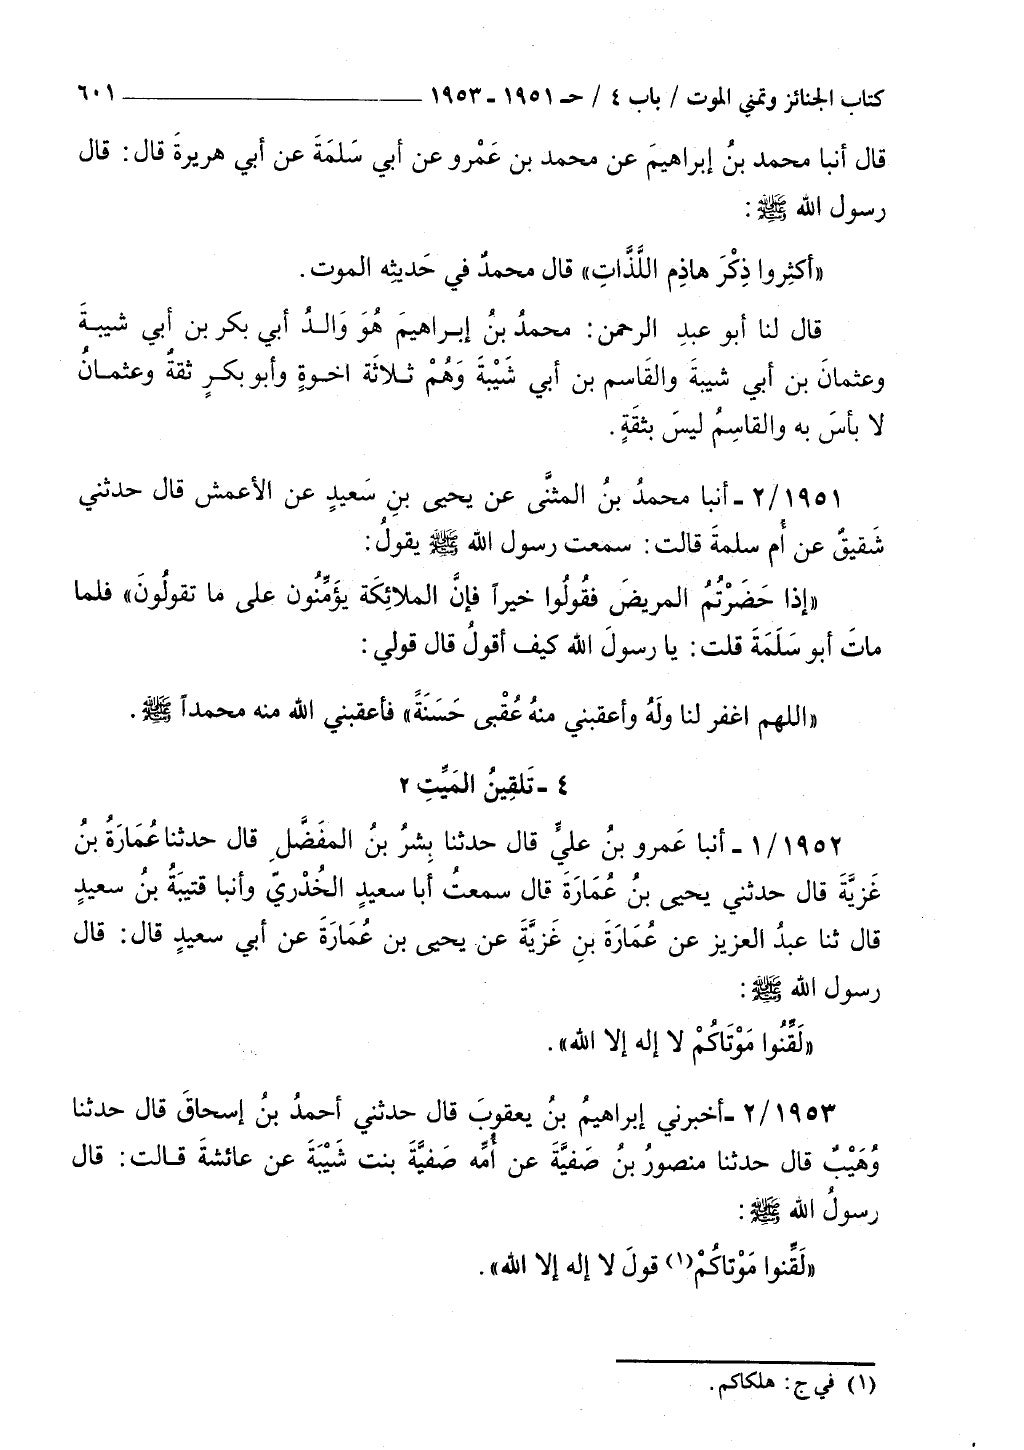 كتاب الجنائز وتمني الموت / باب ٤ / حـ ١٩٥١ - ١٩٥٣ ــــــــــــــ ٦٠١
قال أنبا محمد بنُ إبراهيمَ عن محمد بن عَمْرو عن أبي سَلمَةَ عن أبي هريرةَ قال: قال
رسول الله ﷺ:
«أكثِروا ذِكْرَ هاذِم اللَّذَّاتِ» قال محمدٌ في حَديثِه الموت.
قال لنا أبو عبدِ الرحمن: محمدُ بنُ إبراهيمَ هُوَ وَالـدُ أبي بكر بن أبي شيبةَ
وعثمانَ بن أبي شيبةَ والقَاسم بن أبي شَيْبَةَ وَهُمْ ثـلاثَة اخـوةٍ وأبو بكـرٍ ثقةٌ وعثمـانُ
لا بأسَ به والقاسِمُ ليسَ بثقَةٍ.
٢/١٩٥١ - أنبا محمدُ بنُ المثنَّى عن يحيى بنِ سَعيدٍ عن الأعمش قال حدثني
شَقيقٌ عن أُم سلمةَ قالت: سمعت رسول الله ﷺ يقولُ:
«إذا حَضَرْتُمُ المريضَ فقُولُوا خيراً فإنَّ الملائِكَة يؤَمِّنُون على ما تقولُونَ» فلما
ماتَ أبو سَلَمَةَ قلت: يا رسولَ الله كيف أقولُ قال قولي:
«اللهم اغفر لنا ولَهُ وأعقبني منهُ عُقْبى حَسَنَةً» فأعقبني الله منه محمداً ﷺ.
٤ - تَلقِينُ المَيِّتِ ٢
١/١٩٥٢ - أنبا عَمرو بنُ عليٍّ قال حدثنا بِشرُ بنُ المفَضَّلِ قال حدثنا عُمَارَةُ بنُ
غَزيَّةَ قال حدثني يحيى بنُ عُمَارَةَ قال سمعتُ أبا سعيدٍ الخُدْريّ وأنبا قتيبَةُ بنُ سعيدٍ
قال ثنا عبدُ العزيز عن عُمَارَةَ بنِ غَزيَّةَ عن يحيى بن عُمَارَةَ عن أبي سعيدٍ قال: قال
رسول الله ﷺ:
«لَقِّنُوا مَوْتَاكُمْ لا إله إلا الله».
٢/١٩٥٣ - أخبرني إبراهيمُ بنُ يعقوبَ قال حدثني أحمدُ بنُ إسحاقَ قال حدثنا
وُهَيْبٌ قال حدثنا منصورُ بنُ صَفيَّةَ عن أُمِّه صَفيَّةَ بنت شَيْبَةَ عن عائشةَ قـالت: قال
رسولُ الله ﷺ:
«لَقِّنوا مَوْتاكُمْ(١) قولَ لا إله إلا الله».
(١) في ج: هلكاكم.